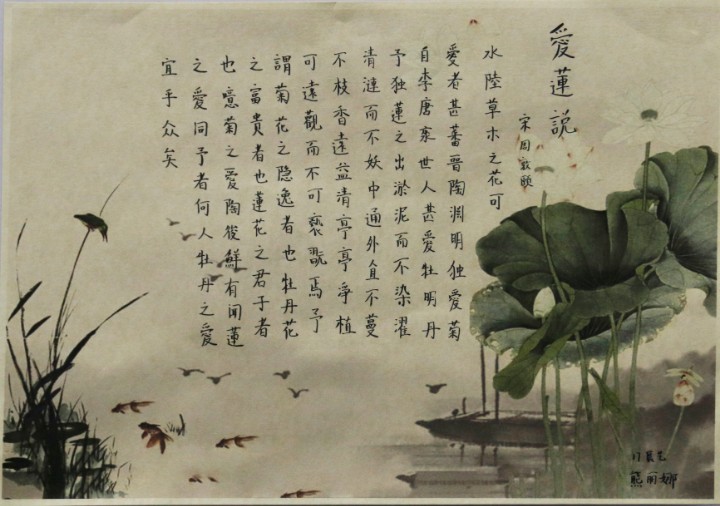 愛蓮説
宋周敦頤
水陸草木之花可
愛者甚蕃晋陶淵明独爱菊
自李唐来世人甚爱牡明丹
予独蓮之出淤泥而不染濯
清漣而不妖中通外直不蔓
不枝香遠益清亭亭爭植
可遠觀而不可褻翫焉予
謂菊花之隐逸者也牡丹花
之富貴者也蓮花之君子者
也噫菊之爱陶後鮮有闻蓮
之爱同予者何人牡丹之爱
宜乎众矣
熊丽娜